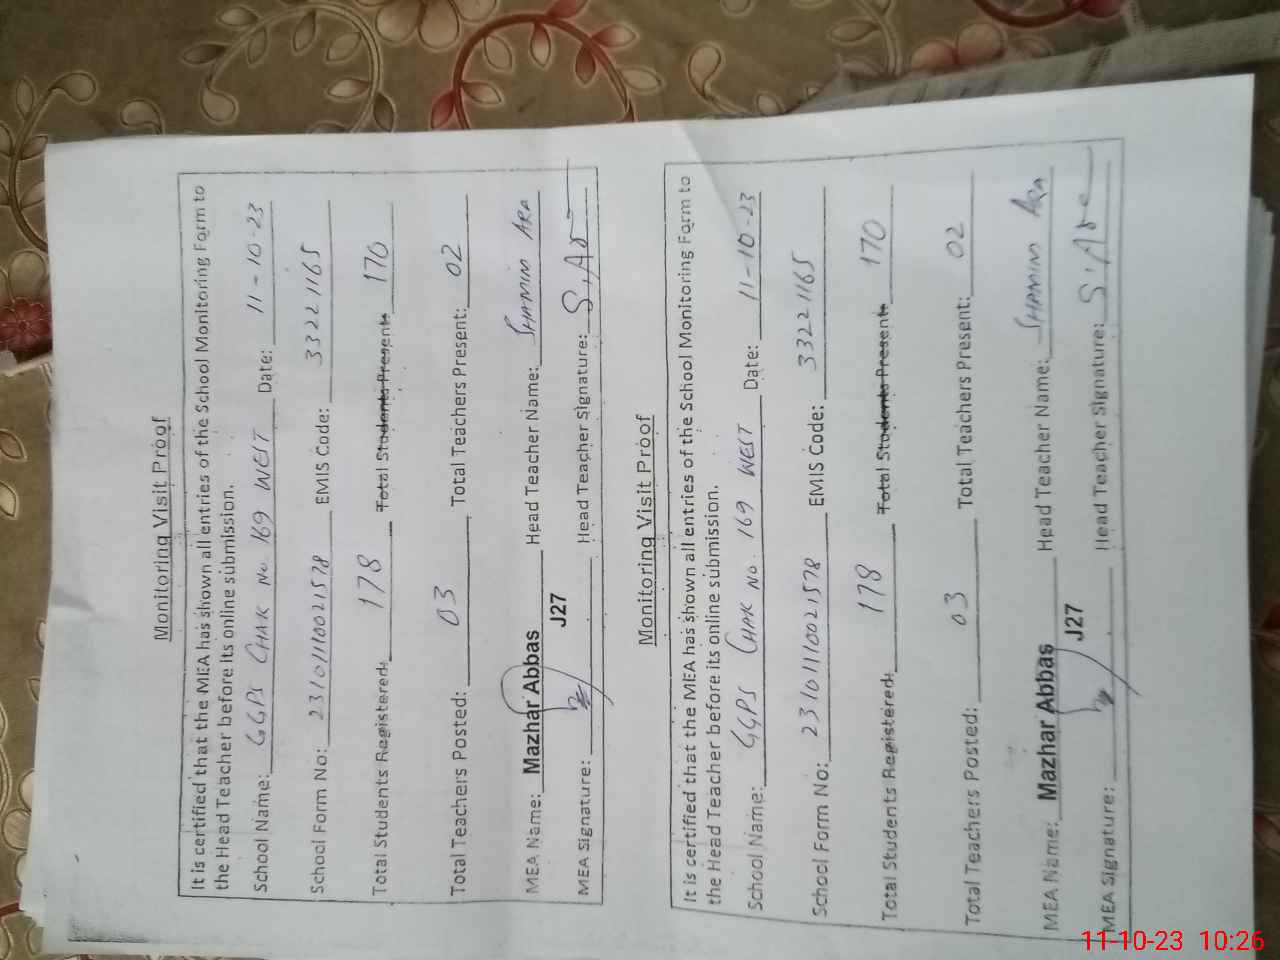 Monitoring Visit Proof
It is certified that the MEA has shown all entries of the School Monitoring Form to
the Head Teacher before its online submission.
School Name: GGPS CHAK NO. 169 WEST Date: 11-10-23
School Form No: 23101110021578 EMIS Code: 33221165
Total Students Registered: 178 Total Students Present: 170
Total Teachers Posted: 03 Total Teachers Present: 02
MEA Name: Mazhar Abbas Head Teacher Name: SHAMIM ARA
J27
MEA Signature: Head Teacher Signature: S.Ara
Monitoring Visit Proof
It is certified that the MEA has shown all entries of the School Monitoring Form to
the Head Teacher before its online submission.
School Name: GGPS CHAK NO. 169 WEST Date: 11-10-23
School Form No: 23101110021578 EMIS Code: 33221165
Total Students Registered: 178 Total Students Present: 170
Total Teachers Posted: 03 Total Teachers Present: 02
MEA Name: Mazhar Abbas Head Teacher Name: SHAMIM ARA
J27
MEA Signature: Head Teacher Signature: S.Ara
11-10-23 10:26